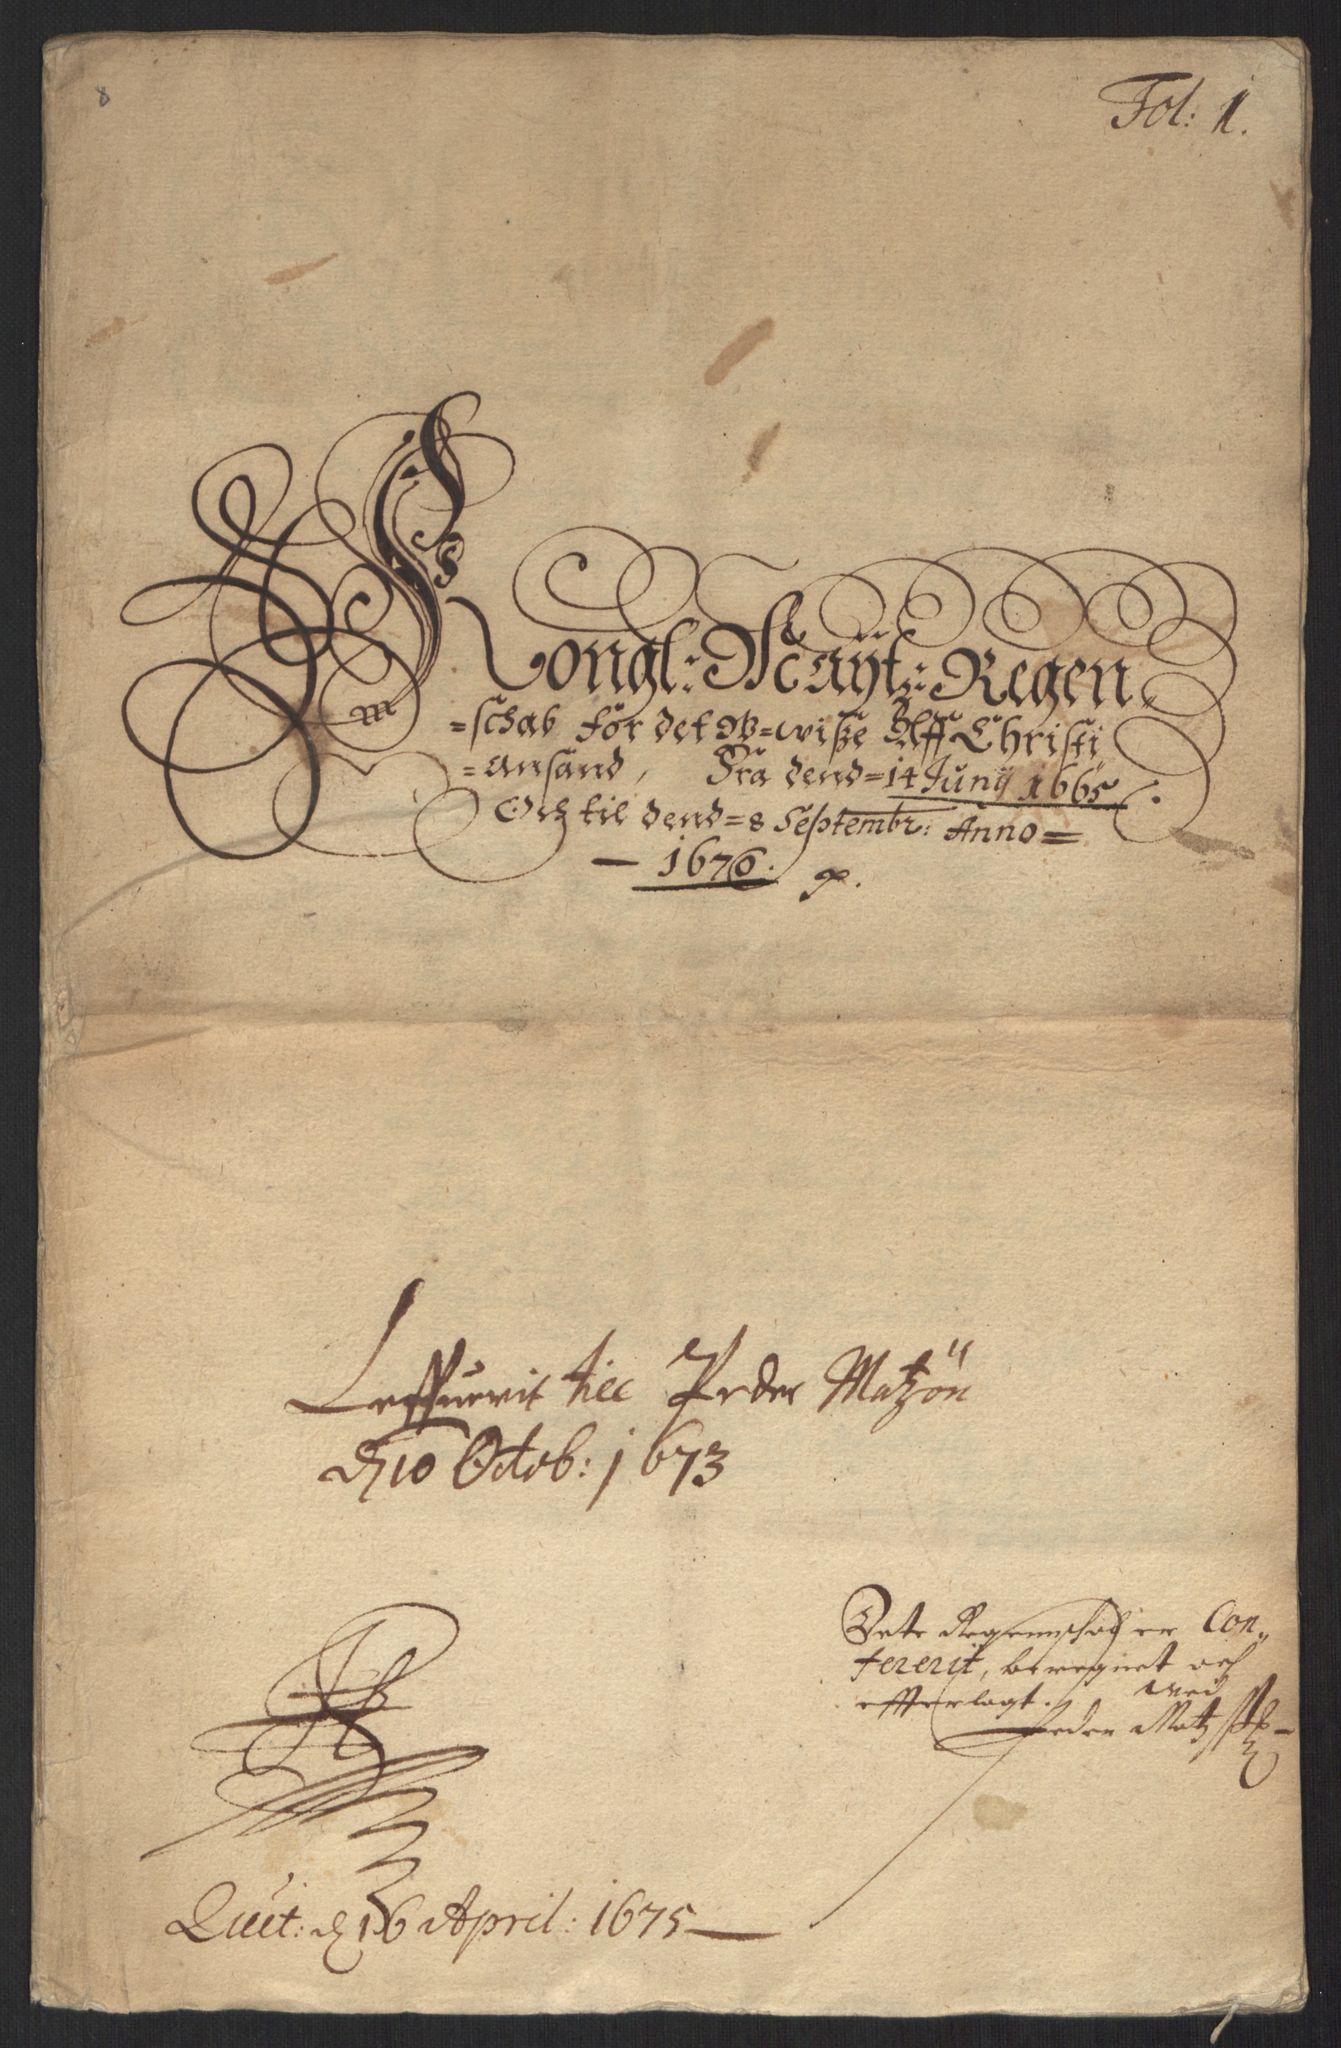 8
Fol: 1.
Kongl: Maÿt:s Regen
=schab för det Wisse Aff Christi
=ansand, Fra dend=14 Junÿ 1665
Och til dend=8 Septembr: Anno=
1670.
Leffuerit till Peder Matzön
d 10 Octob: 1673
Dete Regennschab er Con„
fererit, beregnet och
efferlagt. Med
Peder Matz
Quit: d 16 April: 1675